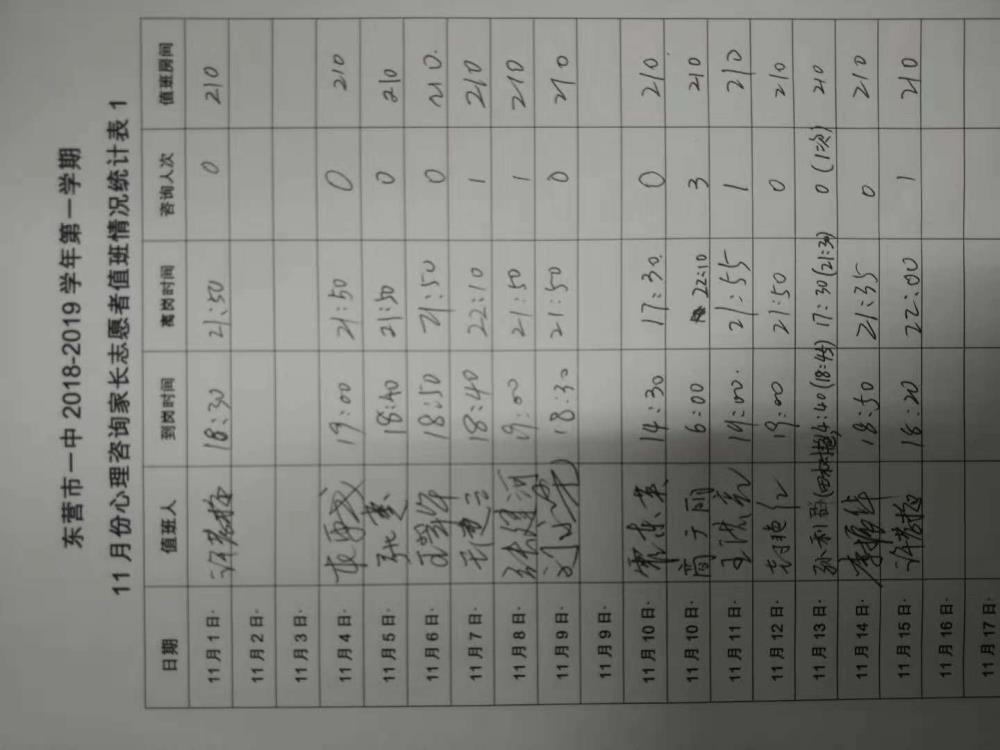 东营市一中 2018-2019 学年第一学期
11 月份心理咨询家长志愿者值班情况统计表 1
日期 值班人 到岗时间 离岗时间 咨询人次 值班房间
11 月 1 日· 18:30 21:50 0 210
11 月 2 日·
11 月 3 日·
11 月 4 日· 19:00 21:50 0 210
11 月 5 日· 18:40 21:50 0 210
11 月 6 日· 18:50 21:50 0 210
11 月 7 日· 18:40 22:10 1 210
11 月 8 日· 19:00 21:50 1 210
11 月 9 日· 18:30 21:50 0 210
11 月 9 日·
11 月 10 日· 14:30 17:30 0 210
11 月 10 日· 高广丽 6:00 22:10 3 210
11 月 11 日· 19:00 21:55 1 210
11 月 12 日· 19:00 21:50 0 210
11 月 13 日· 孙利群 14:40 (18:45) 17:30 (21:30) 0 (1次) 210
11 月 14 日· 18:50 21:35 0 210
11 月 15 日· 18:20 22:00 1 210
11 月 16 日·
11 月 17